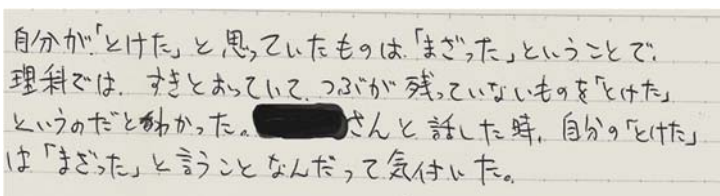 自分が「とけた」と思っていたものは「まざった」ということで、
理科では、すきとおっていて、つぶが残っていないものを「とけた」
というのだとわかった。さんと話した時、自分の「とけた」
は「まざった」と言うことなんだって気付いた。